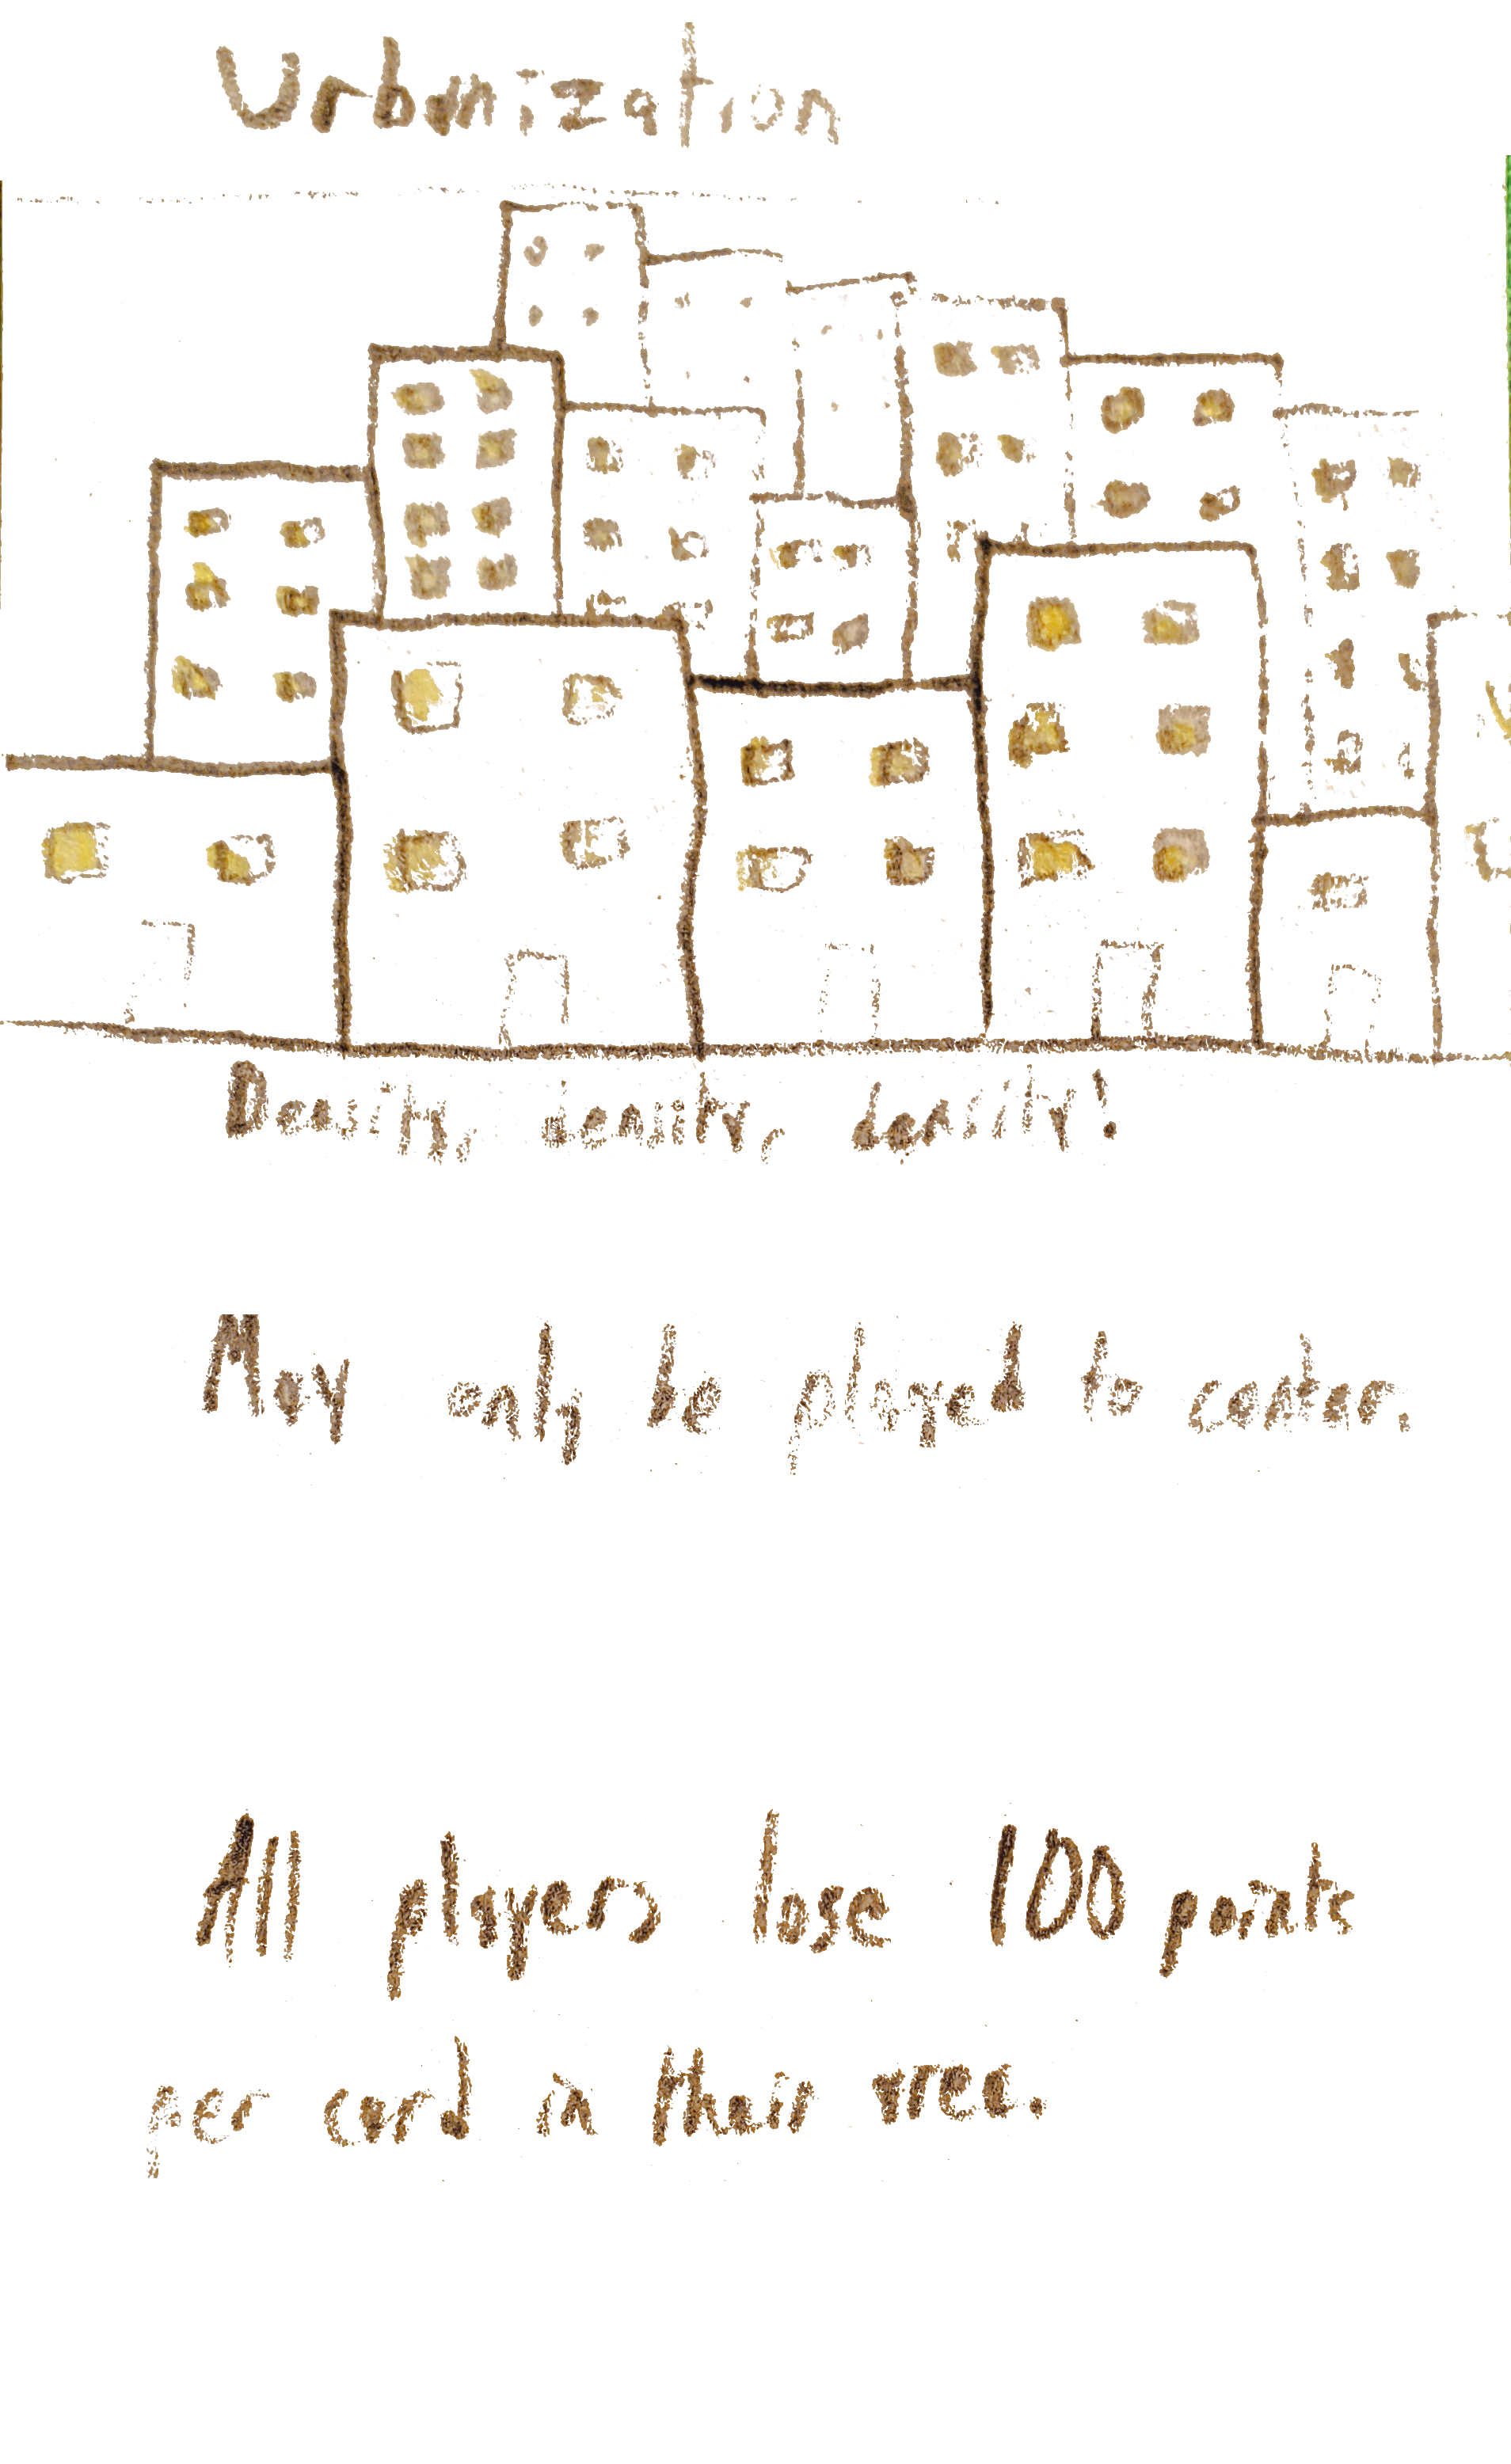 Urbanization
Density, density, density!
May only be played to center.
All players lose 100 points
per card in their